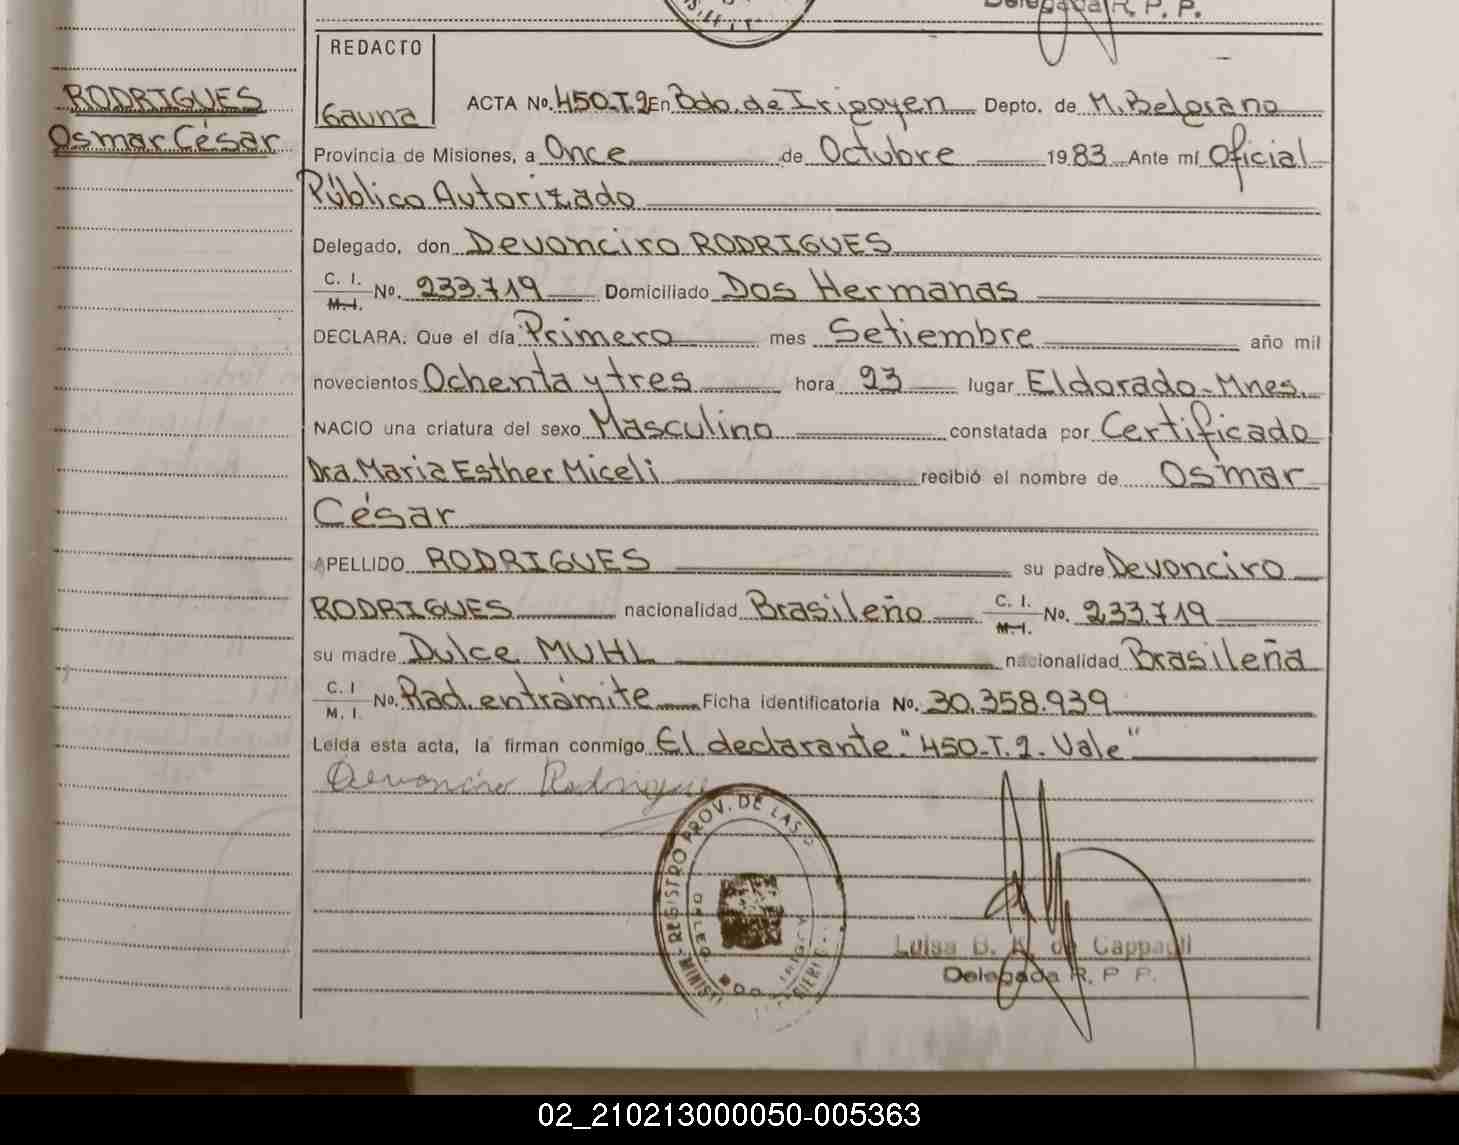 Delegada R. P. P.
REDACTO
Gauna
RODRIGUES
Osmar César
ACTA No. 450-T.2 En Bdo. de Irigoyen Depto. de M. Belgrano
Provincia de Misiones, a Once de Octubre 1983 Ante mí Oficial
Público Autorizado
Delegado, don Devonciro RODRIGUES
C. I.
M. I. No. 233.719 Domiciliado Dos Hermanas
DECLARA: Que el día Primero mes Setiembre año mil
novecientos Ochenta y tres hora 23 lugar Eldorado-Mnes.
NACIO una criatura del sexo Masculino constatada por Certificado
Dra. Maria Esther Miceli recibió el nombre de Osmar
César
APELLIDO RODRIGUES su padre Devonciro
RODRIGUES nacionalidad Brasileño C. I.
M. I. No. 233.719
su madre Dulce MUHL nacionalidad Brasileña
C. I
M. I. No. Rad. entrámite Ficha identificatoria No. 30.358.939
Leída esta acta, la firman conmigo El declarante "450-T.2-Vale"
Devonciro Rodrigues
REGISTRO PROV. DE LAS
Luisa B. K. de Cappauli
Delegada R. P. P.
02_210213000050-005363